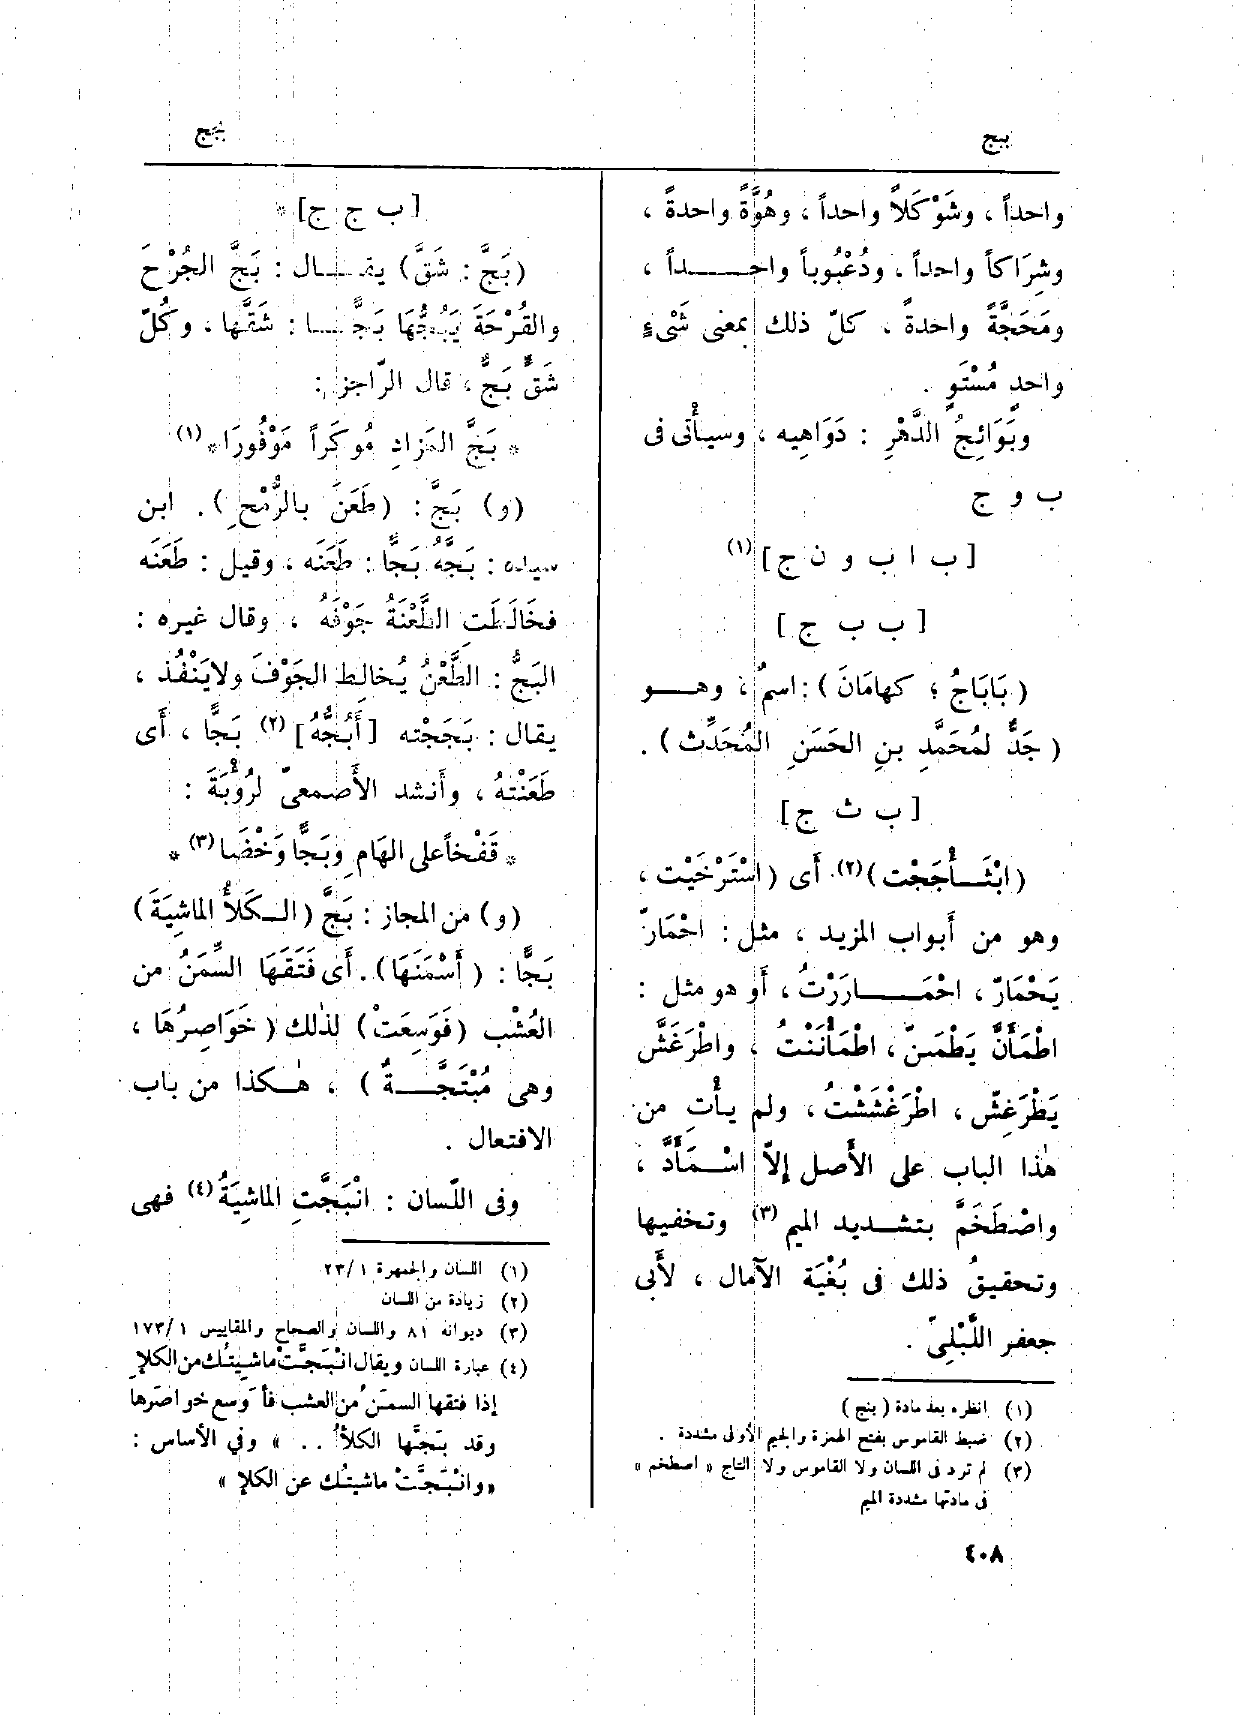 ببج
بجج
واحداً ، وشَوْكَلاً واحداً ، وهُوَّةً واحدةً ،
وشِرَاكاً واحداً ، ودُعْبُوباً واحـــداً ،
ومَحَجَّةً واحدةً ، كلّ ذلك بمعنى شَىْءٍ
واحدٍ مُسْتَوٍ .
وبَوَائِجُ الدَّهْرِ : دَوَاهِيه ، وسيأْتى فى
ب و ج
[ ب ا ب و ن ج ] (١)
[ ب ب ج ]
( بَابَاجُ ؛ كهامَانَ ) : اسمٌ ، وهــو
( جَدٌّ لمُحَمَّدِ بنِ الحَسَنِ المُحَدِّث ) .
[ ب ث ج ]
( ابْثَــأْجَجْت ) (٢) أَى ( اسْتَرْخَيْت ،
وهو من أَبواب المزيد ، مثل : احْمَارّ
يَحْمَارّ ، احْمَــــارَرْتُ ، أَو هو مثل :
اطْمَأَنَّ يَطْمَئِنّ ، اطْمَأْنَنْتُ ، واطْرَغَشَّ
يَطْرَغِشّ ، اطْرَغْشَشْتُ ، ولم يأْتِ من
هٰذا الباب على الأَصل إِلاّ اسْـمَأَدَّ ،
واصْطَخَمَّ بتشديد الميم (٣) وتخفيها
وتحقيقُ ذلك فى بُغْيَة الآمال ، لأَبى
جعفر اللَّبْلِىّ .
(١) انظره بعد مادة ( بنج )
(٢) ضبط القاموس بفتح الهمزة والجيم الأولى مشددة .
(٣) لم ترد فى اللسان ولا القاموس ولا التاج « اصطخم »
فى مادتها مشددة الميم
٤٠٨
[ ب ج ج ] *
(بَجَّ : شَقَّ) يقــال : بَجَّ الجُرْحَ
والقُرْحَةَ يَبُجُّهَا بَجًّــا : شَقَّها ، وكُلّ
شَقٍّ بَجٌّ ، قال الرّاجز :
* بَجَّ المَزادِ مُوكَراً مَوْفُورَا * (١)
(و) بَجَّ : (طَعَنَ بالرُّمْحِ ) . ابن
سيده : بَجَّهُ بَجًّا : طَعَنَه ، وقيل : طَعَنَه
فخَالَطَتِ الطَّعْنَةُ جَوْفَهُ ، وقال غيره :
البَجُّ : الطَّعْنُ يُخالِط الجَوْفَ ولايَنْفُذ ،
يقال : بَجَجْته [ أَبُجُّهُ ] (٢) بَجًّا ، أَى
طَعَنْتهُ ، وأَنشد الأَصمعىّ لرُؤْبَةَ :
* قَفْخاً على الهَامِ وبَجًّا وَخْضَا (٣) *
(و) من المجاز : بَجَّ ( الــكَلأُ المَاشِيَةَ )
بَجًّا : ( أَسْمَنَهَا) . أَى فَتَقَهَا السِّمَنُ من
العُشْب ( فَوَسِعَتْ ) لذٰلك ( خَوَاصِرُهَا ،
وهى مُبْتَجَّــةٌ ) ، هٰـكذا من باب
الافتعال .
وفى اللّسان : انْبَجَّتِ المَاشِيَةُ (٤) فهى
(١) اللسان والجمهرة ١ /٢٣
(٢) زيادة من اللسان
(٣) ديوانه ٨١ واللسان والصحاح والمقاييس ١ /١٧٣
(٤) عبارة اللسان ويقال انْبَجَّتْ ماشيتُك من الكلإِ
إذا فتقها السمَنُ من العشب فأَوسع خواصرَها
وقد بَجَّها الكلأُ . . » وفي الأساس :
«وانْبَجَّتْ ماشيتُك عن الكلإِ »